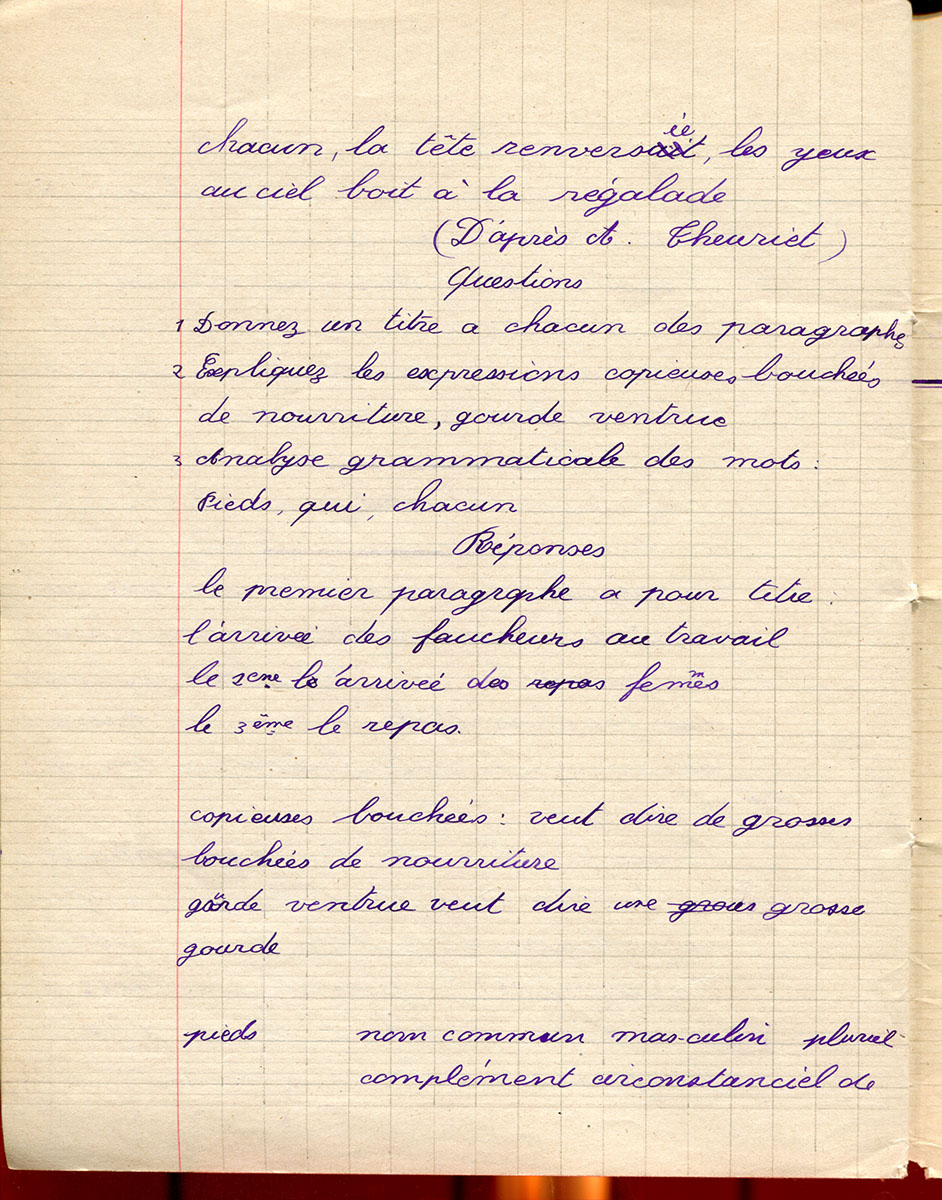 chacun, la tête renversée, les yeux
au ciel boit à la régalade
(D'après A. Theuriet)
Questions
1 Donnez un titre a chacun des paragraphes
2 Expliquez les expressions copieuses bouchées
de nourriture, gourde ventrue
3 Analyse grammaticale des mots :
Pieds, qui, chacun
Réponses
le premier paragraphe a pour titre :
l'arrivée des faucheurs au travail
le 2eme l'arriveé des repas femmes
le 3ème le repas.
copieuses bouchées : veut dire de grosses
bouchées de nourriture
gourde ventrue veut dire une grosse
gourde
pieds nom commun masculin pluriel
complément circonstanciel de